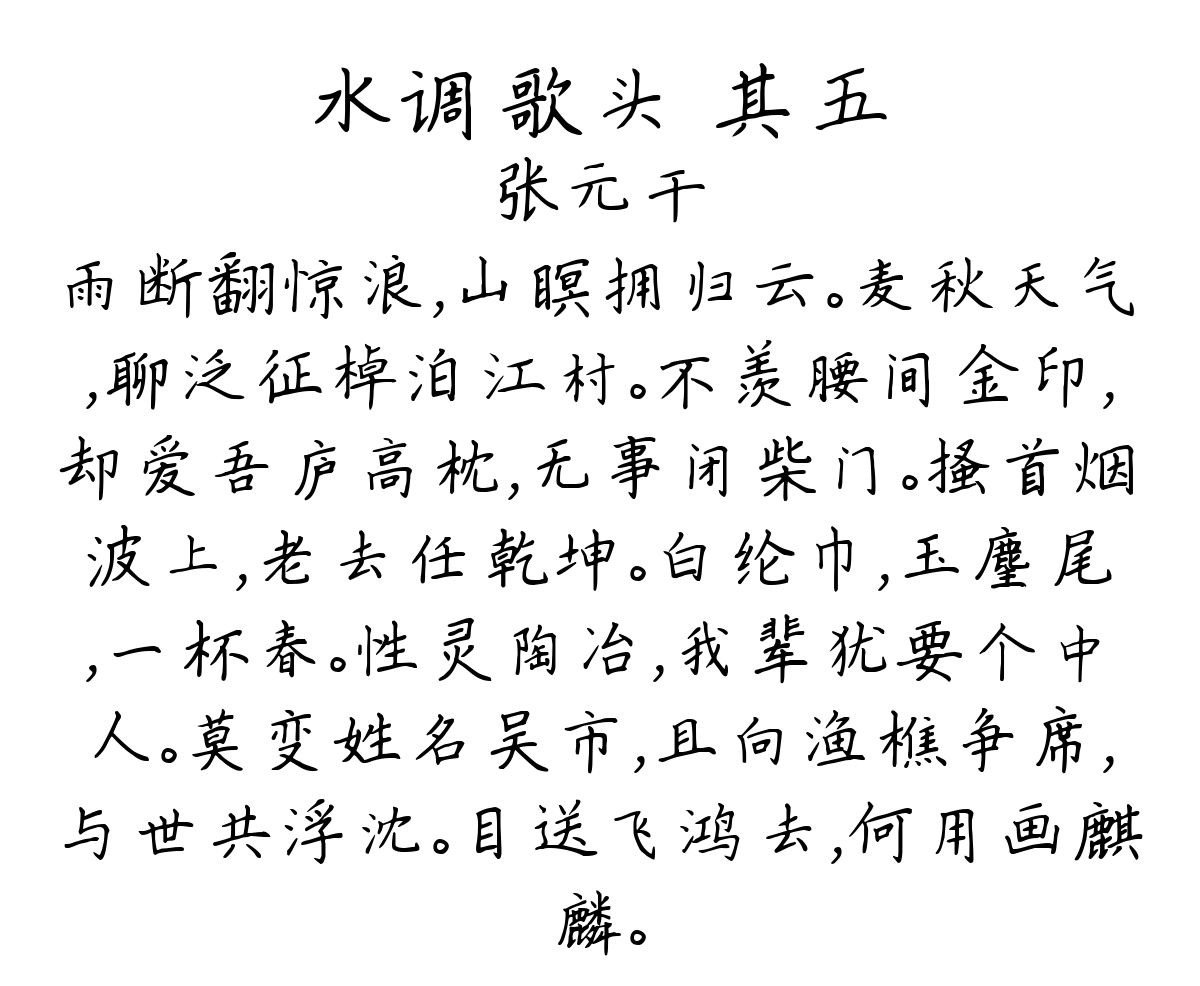 水调歌头 其五
张元干
雨断翻惊浪,山暝拥归云。麦秋天气
,聊泛征棹泊江村。不羡腰间金印,
却爱吾庐高枕,无事闭柴门。搔首烟
波上,老去任乾坤。白纶巾,玉麈尾
,一杯春。性灵陶冶,我辈犹要个中
人。莫变姓名吴市,且向渔樵争席,
与世共浮沈。目送飞鸿去,何用画麒
麟。